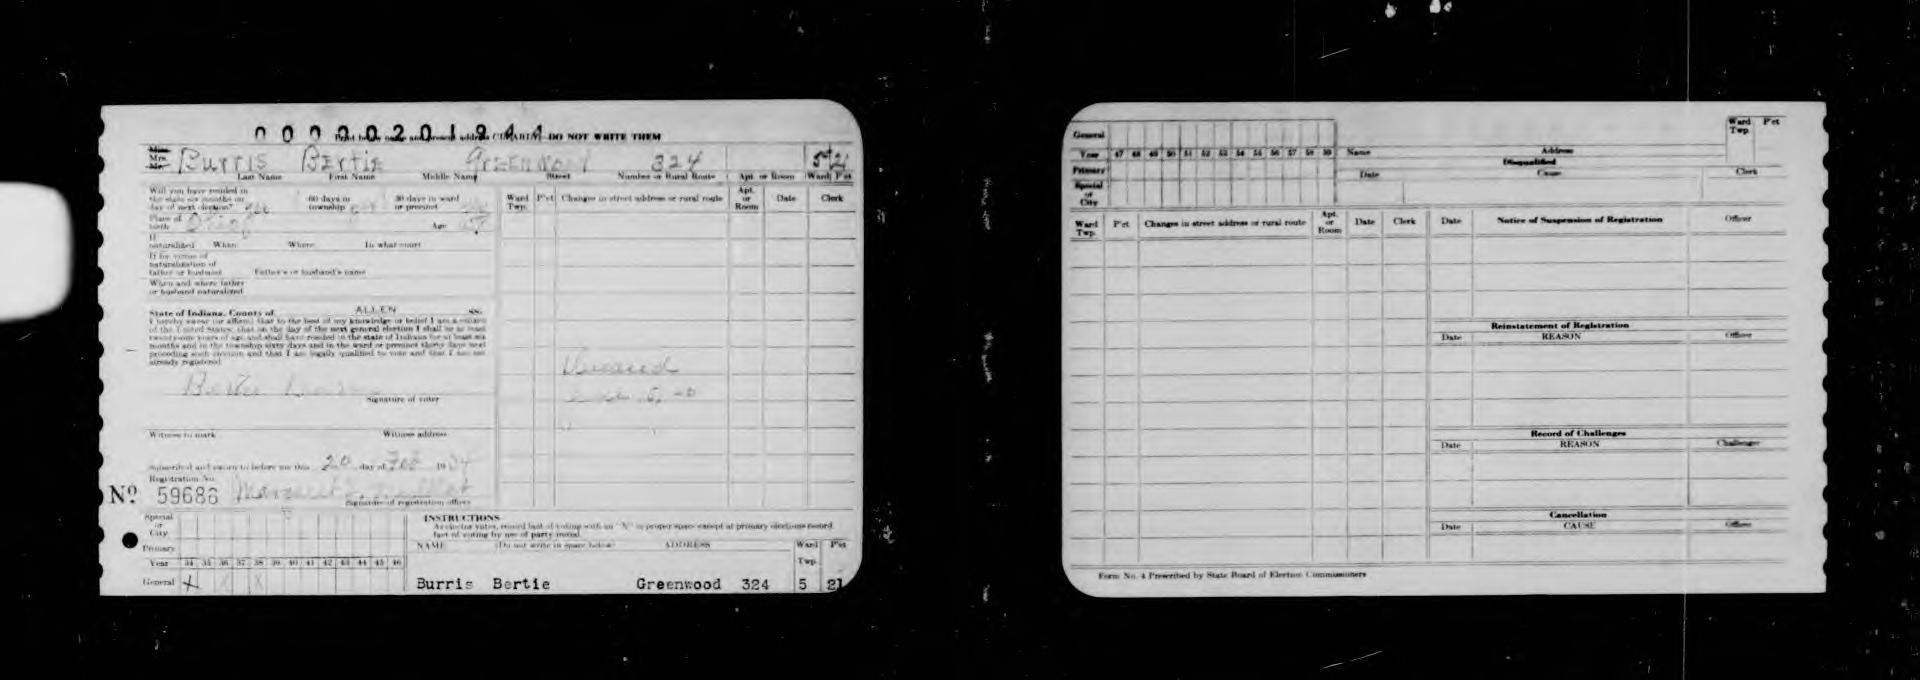 0 0 0 0 0 2 0 1 9 4 4
Print below name and present address CLEARLY—DO NOT WRITE THEM
Miss
Mrs. Burris Bertie Greenwood 324 5 21
Mr.
Last Name First Name Middle Name Street Number or Rural Route Apt. or Room Ward P'ct
Will you have resided in
the state six months on 60 days in 30 days in ward
day of next election? township or precinct
Place of
birth Age
If
naturalized When Where In what court
If by virtue of
naturalization of
father or husband Father's or husband's name
When and where father
or husband naturalized
State of Indiana, County of ALLEN SS.
I hereby swear (or affirm) that to the best of my knowledge or belief I am a citizen
of the United States; that on the day of the next general election I shall be at least
twenty-one years of age and shall have resided in the state of Indiana for at least six
months and in the township sixty days and in the ward or precinct thirty days next
preceding such election and that I am legally qualified to vote and that I am not
already registered.
Bertie
Signature of voter
Witness to mark Witness address
Subscribed and sworn to before me this 20 day of Feb 1934
Registration No.
Nº 59686 Margaret
Signature of registration officer
Ward
Twp. P'ct Changes in street address or rural route Apt.
or
Room Date Clerk
Special
or
City
Primary
Year 34 35 36 37 38 39 40 41 42 43 44 45 46
General X X X
INSTRUCTIONS
As elector votes, record fact of voting with an "X" in proper space except at primary elections record
fact of voting by use of party initial.
NAME (Do not write in space below) ADDRESS Ward
Twp. P'ct
Burris Bertie Greenwood 324 5 21
General
Year 47 48 49 50 51 52 53 54 55 56 57 58 59 Name Address Ward
Twp. P'ct
Primary Disqualified
Date Cause Clerk
Special
or
City
Ward
Twp. P'ct Changes in street address or rural route Apt.
or
Room Date Clerk
Date Notice of Suspension of Registration Officer
Reinstatement of Registration
Date REASON Officer
Record of Challenges
Date REASON Challenger
Cancellation
Date CAUSE Officer
Form No. 4 Prescribed by State Board of Election Commissioners